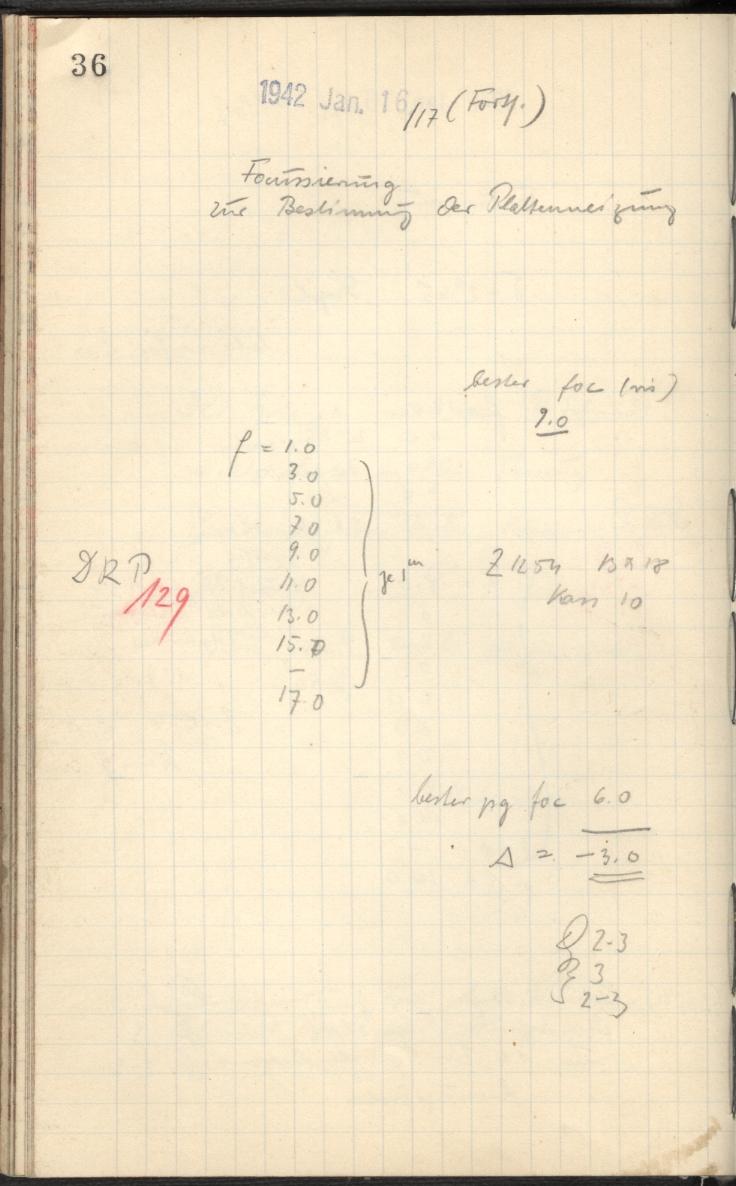 36
1942 Jan. 16/17 (Forts.)
Focussierung
zur Bestimmung der Plattenneigung
bester foc (vis)
9.0
f = 1.0
3.0
5.0
7.0
9.0
11.0
13.0
15.0
–
17.0
je 1ᵐ
DRP
129
Z 1254
Kass 10
bester pg foc 6.0
Δ = -3.0
2-3
3
2-3